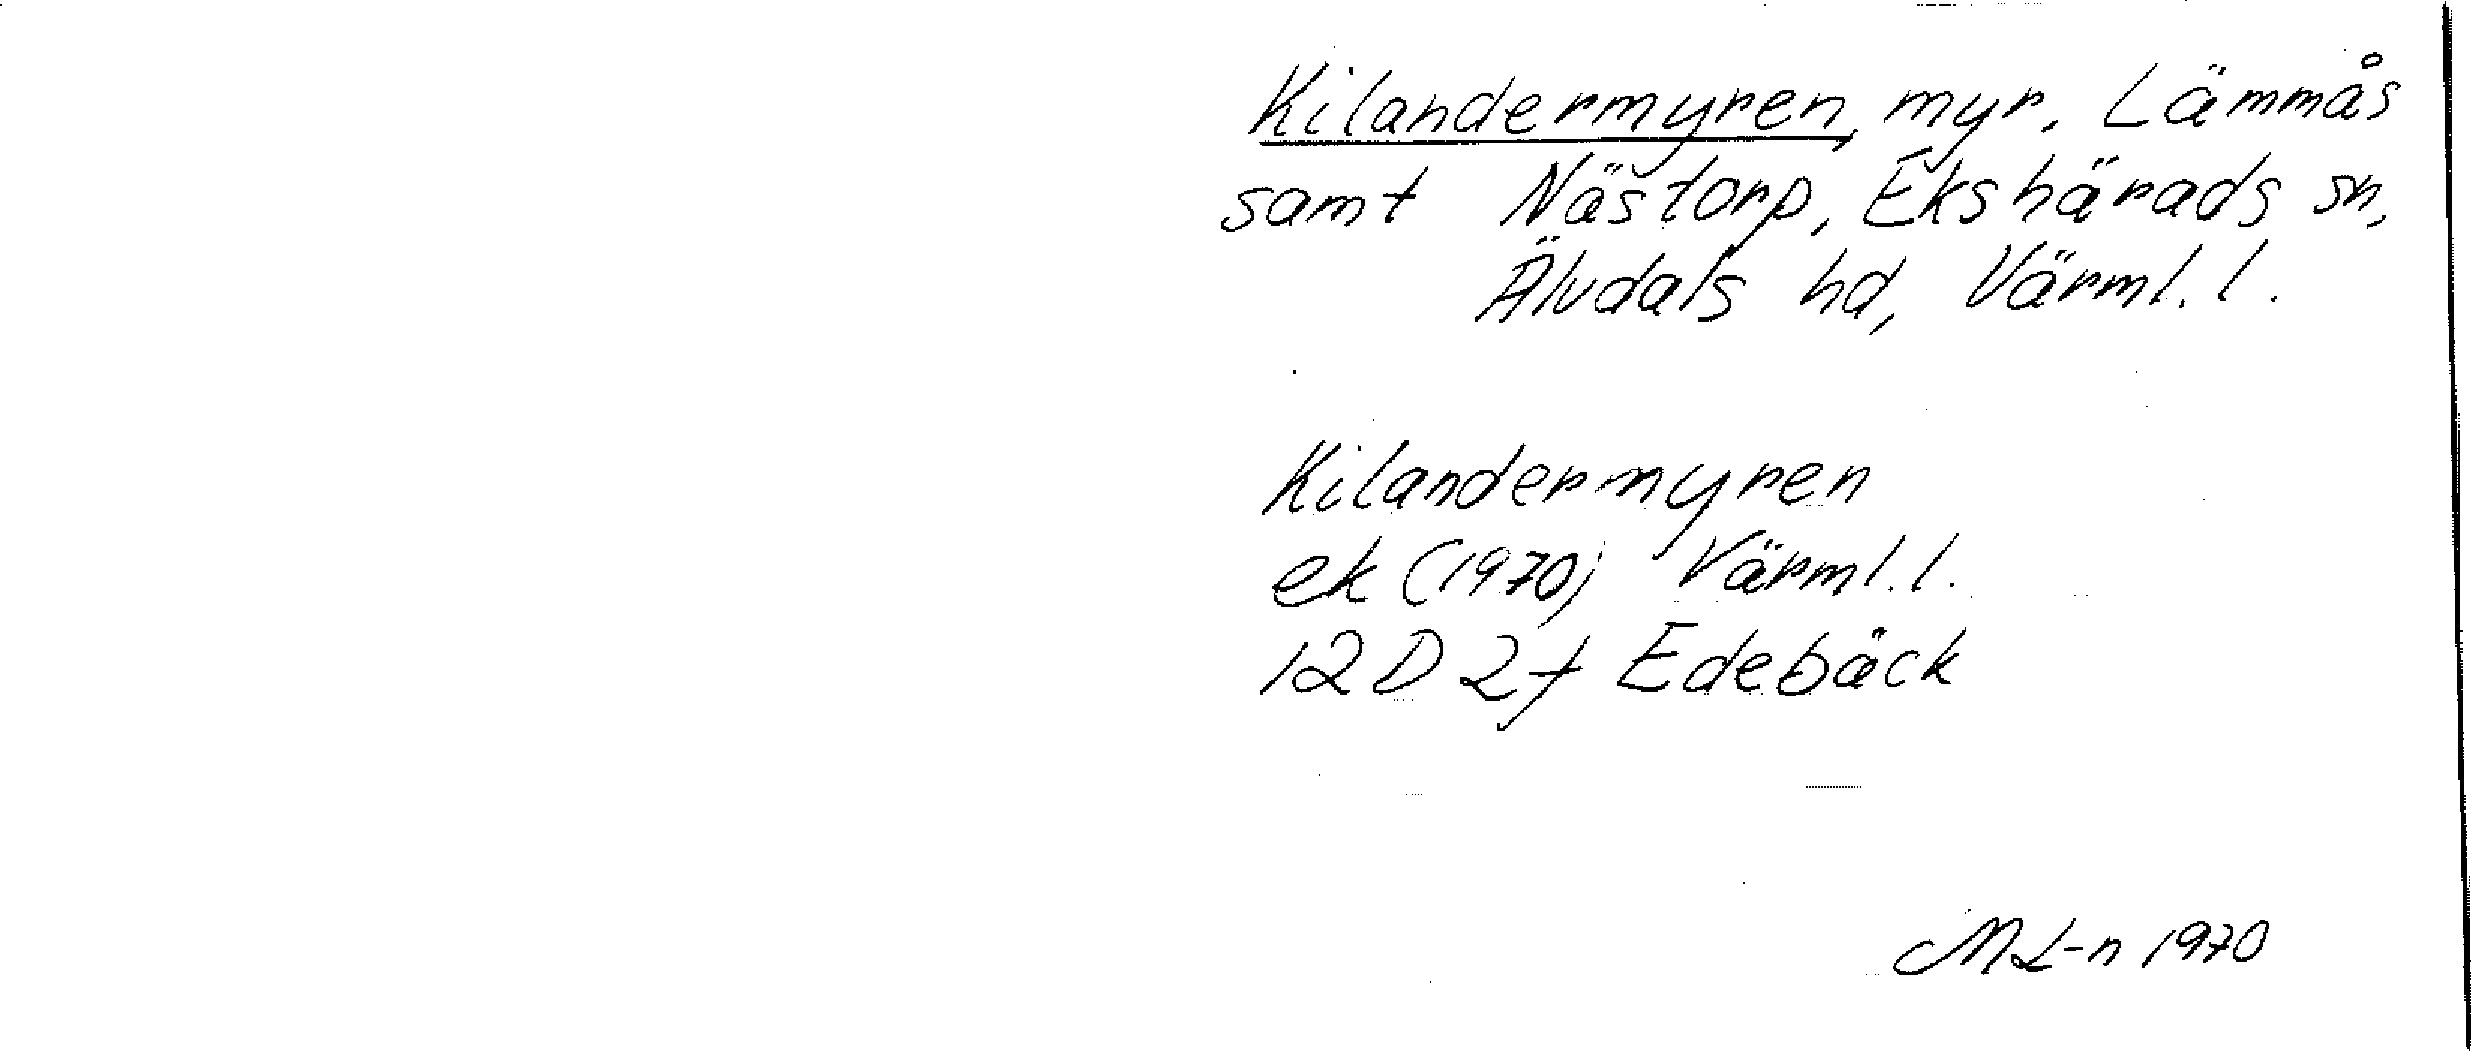 Kilandermyren, myr, Lämmås
samt Nästorp, Ekshärads sn,
Älvdals hd, Värml. l.
Kilandermyren
ek (1970) Värml. l.
12D 2f Edebäck
ML-n 1970